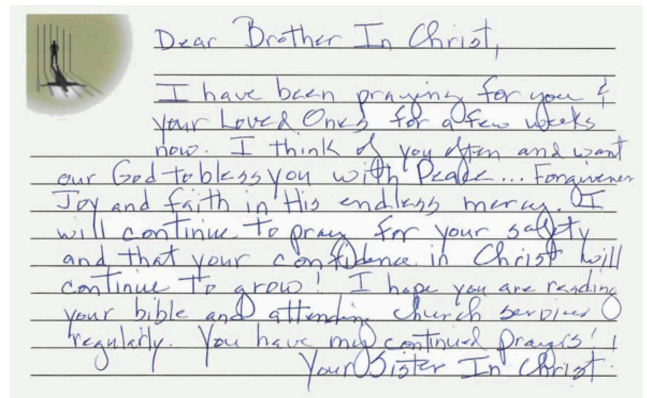 Dear Brother In Christ,
I have been praying for you &
your Loved Ones for a few weeks
now. I think of you often and want
our God to bless you with Peace... Forgiveness
Joy and faith in His endless mercy. I
will continue to pray for your safety
and that your confidence in Christ will
continue to grow! I hope you are reading
your bible and attending church services
regularly. You have my continued prayers!
Your Sister In Christ